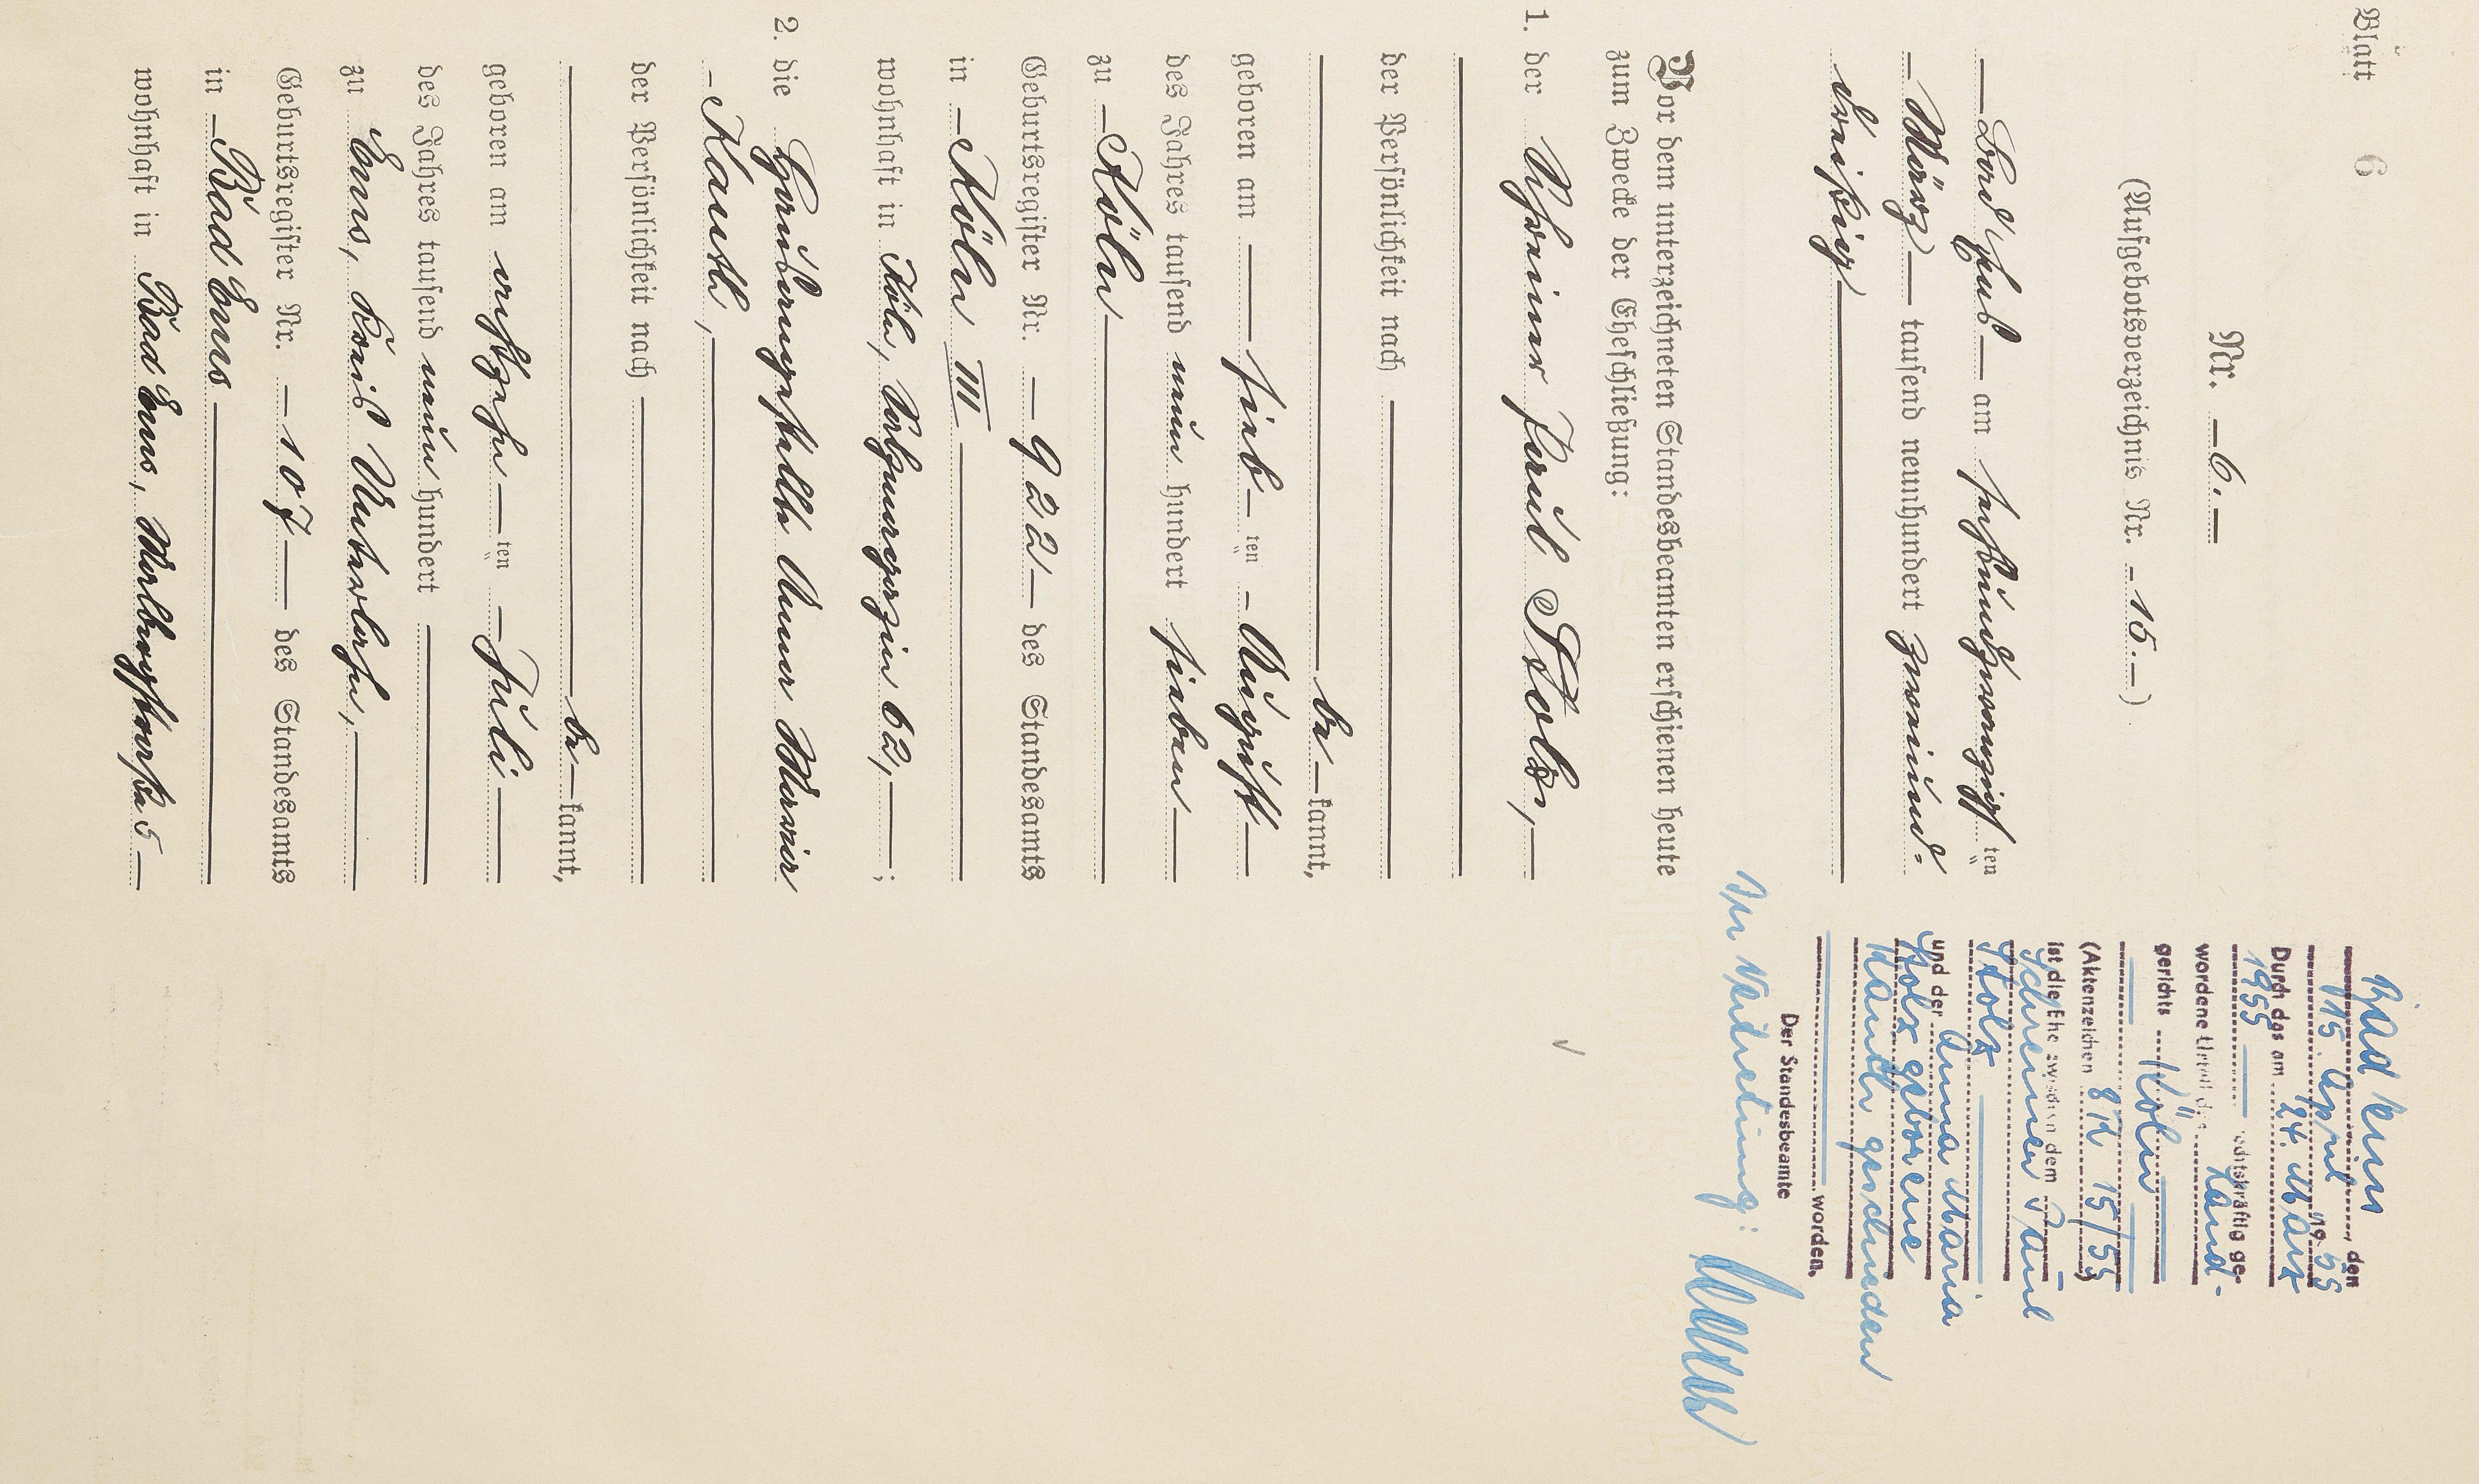 Blatt 6
Nr. — 6. —
(Aufgebotsverzeichnis Nr. - 15. —)
— Bad Ems — am sechsundzwanzigsten
— März — tausend neunhundert zweiund-
dreißig
Vor dem unterzeichneten Standesbeamten erschienen heute
zum Zwecke der Eheschließung:
1. der Schreiner Paul Stolz, —
der Persönlichkeit nach
be — kannt,
geboren am — sieb — ten - August —
des Jahres tausend neun hundert sieben —
zu — Köln —
Geburtsregister Nr. — 922 — des Standesamts
in — Köln III —
wohnhaft in Köln, 62, — ;
2. die Hausangestellte Anna Maria
- Kauth, —
der Persönlichkeit nach
be — kannt,
geboren am achtzehn — ten — Juli —
des Jahres tausend neun hundert —
zu Ems, Kreis Unterlahn, —
Geburtsregister Nr. — 107 — des Standesamts
in - Bad Ems —
wohnhaft in Bad Ems, 5 —
Bad Ems, den
15. April 1955
Durch das am 24. März
1955 rechtskräftig ge-
wordene Urteil des Land-
gerichts Köln
(Aktenzeichen 8 R 15/55)
ist die Ehe zwischen dem
Schreiner Paul
Stolz
und der Anna Maria
Stolz geborene
Kauth geschieden
worden.
Der Standesbeamte
In Vertretung: